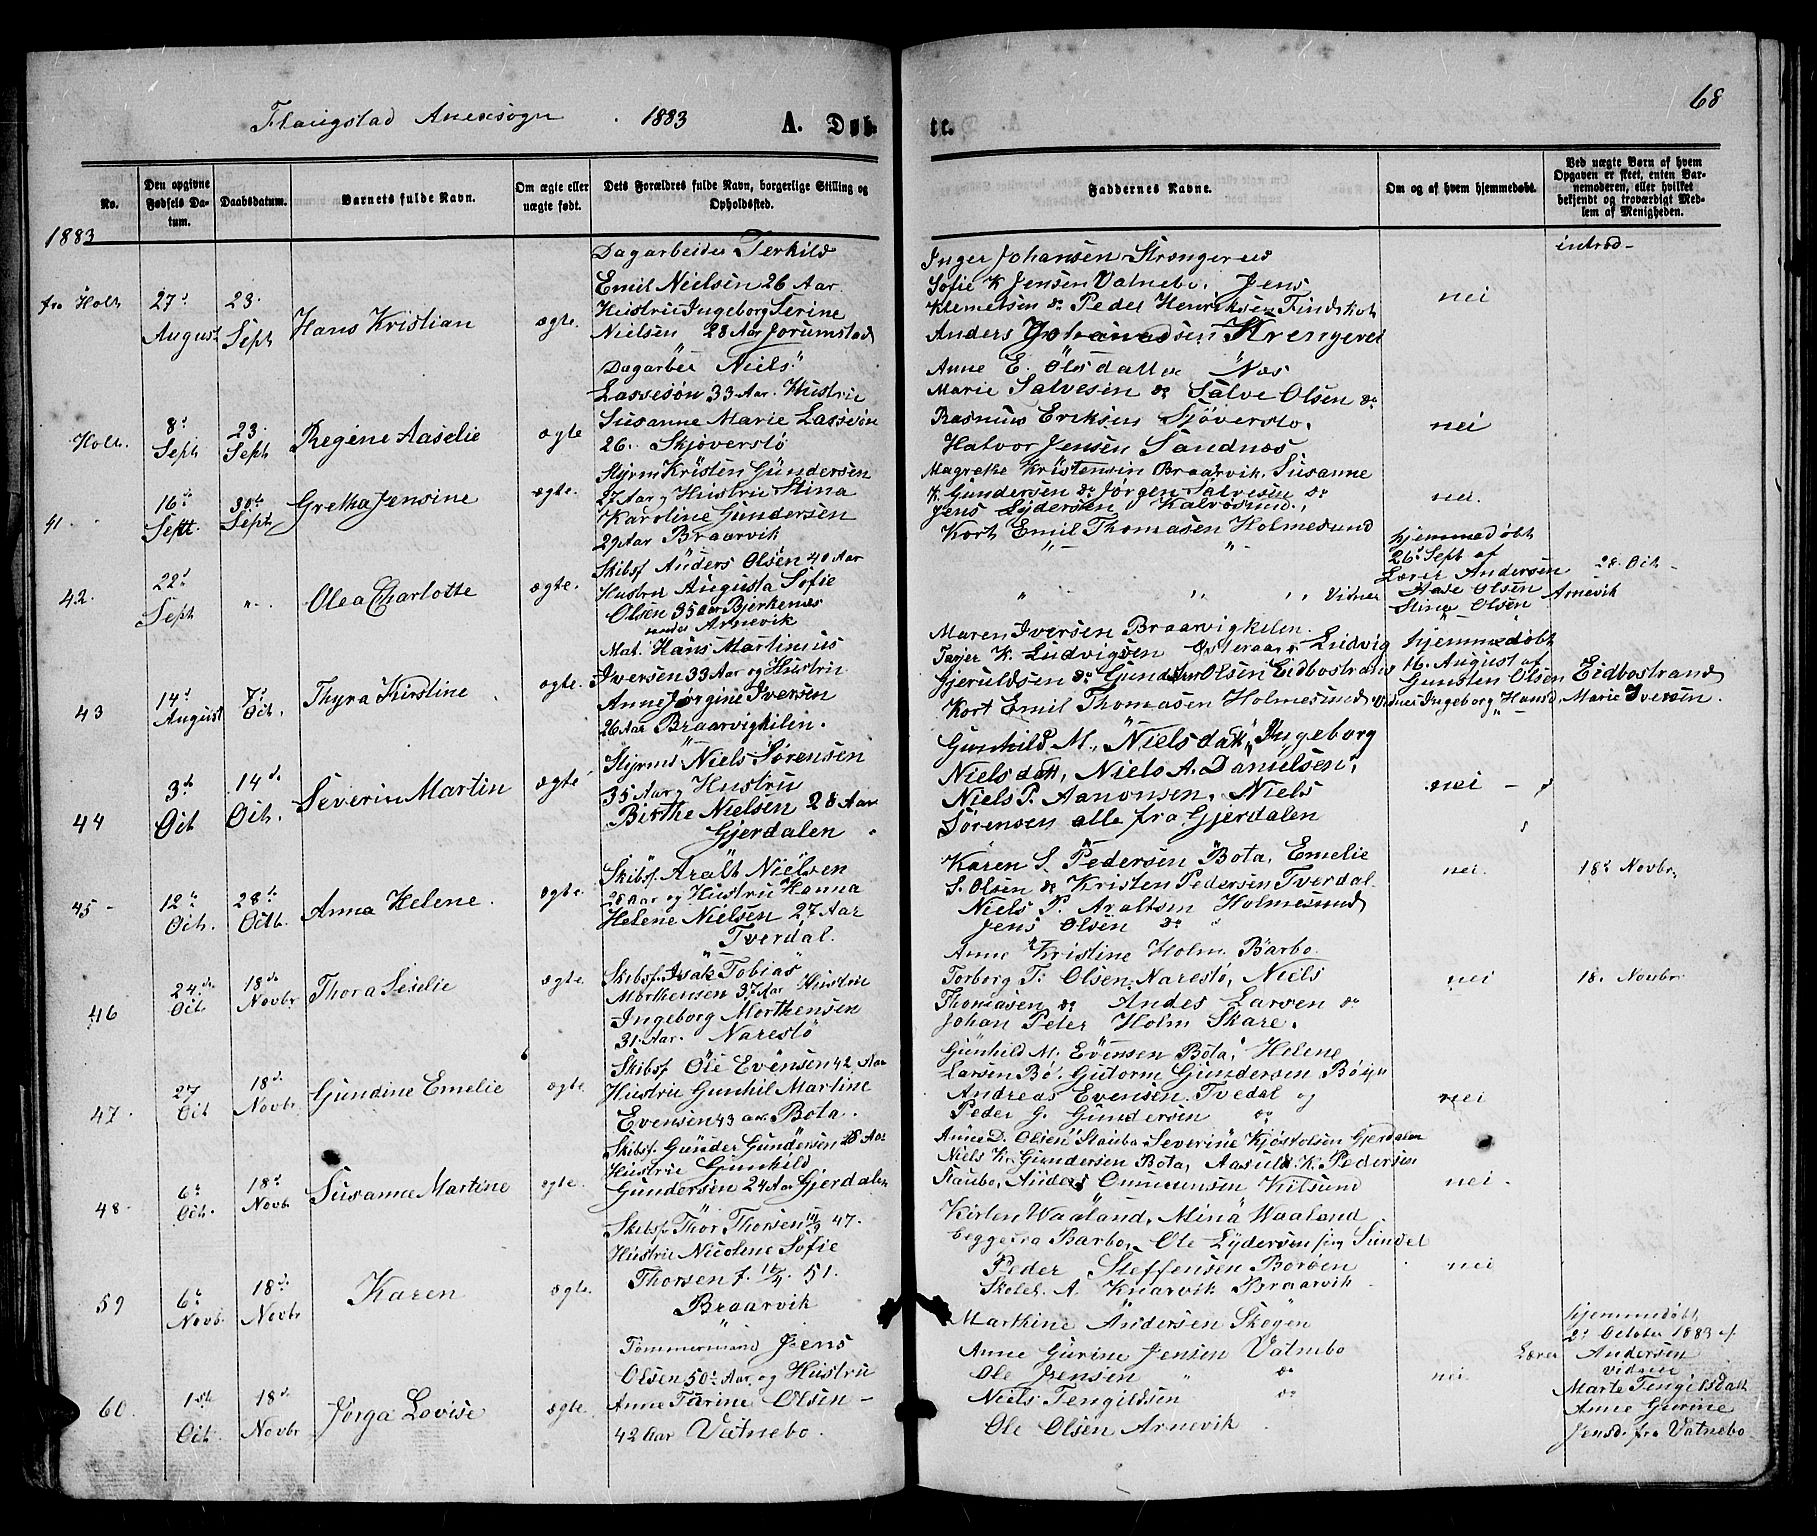 Flaugstad Anexsogn 1883 A. Døb-
te. 68
No.
Den opgivne Fødsels Da-
tum.
Daabsdatum.
Barnets fulde Navn.
Om ægte eller
uægte født.
Dets Forældres fulde Navn, borgerlige Stilling og
Opholdssted.
Faddernes Navne.
Om og af hvem hjemmedøbt.
Ved uægte Børn af hvem
Opgaven er skeet, enten Bar-
nemoderen, eller hvilket
bekjendt og troværdigt Med-
lem af Menigheden.
1883
fra Holt
27d
August
23.
Sept
Hans Kristian
ægte.
Dagarbeider Terkild
Emil Nielsen 26 Aar.
Hustru Ingeborg Serine
Nielsen 28 Aar Jorumstad
Inger Johansen Strengereid
Sofie K Jensen Vatnebo, Jens
Klemetsen do Peder Henriksen Findskot
Anders Johannesen Strengereid
nei
introd-
Holt.
8d
Sept
23.
Sept
Regine Aaselie
ægte
Dagarbei Niels
Lassesøn 33 Aar. Hustrie
Susanne Marie Lassesøn
26. Skjøverstø
Anne E. Olsdatter Næs
Marie Salvesen do Salve Olsen do
Rasmus Eriksen Sjøverstø.
Halvor Jensen Sandnæs
nei
41.
16de
Sept.
30te
Sept
Grethe Jensine
ægte.
Styrm Kristen Gundersen
27 Aar og Hustru Stina
Karoline Gundersen
29 Aar Braarvik
Magrethe Kristensen Braarvik, Susanne
K. Gundersen do Jørgen Salvesen do
Jens Lydersen Kalvøsund.,
Kort Emil Thomasen Holmesund
nei.
42.
22d
Sept
"
Olea Charlotte
ægte.
Skibsf Anders Olsen 40 Aar
Hustru Augusta Sofie
Olsen 35 aar Bjerkenæs
under Arnevik
" " " Vidner
hjemmedøbt
26d Sept af
Lærer Andersen
Aase Olsen
Stina Olsen Arnevik
28. Oct
43
14d
August
7d
Oct.
Thyra Kirstine
ægte.
Mat. Hans Martinius
Iversen 33 Aar og Hustru
Anne Jørgine Iversen
26 Aar Braarvigkilen.
Maren Iversen Braarvigkilen.
Tarjer K. Ludvigsen Østeraar, Ludvig
Gjeruldsen do Gunder Olsen Eidbostrand
Kort Emil Thomasen Holmesund
hjemmedøbt
16. August af
Gunsten Olsen Eidbostrand
Vidner Ingeborg Hansd Marie Iversen.
44
3de
Oct
14de
Oct.
Severin Martin
ægte
Styrmd Niels Sørensen
35 Aar og Hustru
Birthe Nielsen 28 Aar
Gjerdalen
Gunhild M., Nielsdatt, Ingeborg
Nielsdatt, Niels A. Danielsen,
Niels P. Aanonsen. Niels
Sørensen alle fra Gjerdalen
nei
45
12te
Oct.
28de
Octb.
Anna Helene.
ægte.
Skibsf. Aralt Nielsen
28 Aar og Hustru Hanna
Helene Nielsen 27 Aar
Tverdal.
Karen S. Pedersen Bota, Emelie
S. Olsen do Kristen Pedersen Tverdal.
Niels P. Araltsen Holmesund
Jens Olsen do
nei.
18d Novbr,
46
24de
Oct
18de
Novbr
Thora Seselie
ægte.
Skibsf. Isak Tobias
Morthensen 37 Aar Hustru
Ingeborg Morthensen
31. Aar. Narestø
Anne Kristine Holm Barbo.
Torborg T. Olsen, Narestø, Niels
Thomasen do Andes Larsen do
Johan Peter Holm Skare.
nei
18. Novbr
47.
27
Oct
18de
Novbr
Gundine Emelie
ægte
Skibsf Ole Evensen 42 Aar
Hustru Gunhil Martine
Evensen 43 aar Bota.
Gunhild M. Evensen Bota, Helene
Larsen Bø. Gutorm Gundersen Bøiga
Andreas Evensen. Tvedal og
Peder G. Gundersen do
nei
48.
6te
Oct.
18d
Novb
Susanne Martine
ægte.
Skibsf. Gunder Gundersen 28 Aar
Hustrie Gunhild
Gundersen 24 Aar Gjerdalen
Anne D. Olsen Staubo Severine Kjøstolsen Gjerdalen
Niels K. Gundersen Bota, Aasuld K. Pedersen
Staubo, Anders Gumundsen Kilsund
nei.
59
6te
Novb.
18de
Novbr
Karen
ægte.
Skibsf Thor Thorsen 47.
Hustru Nicolene Sofie
Thorsen f. 51.
Braarvik
Kirten Waaland, Mina Waaland
begge fra Barbo, Ole Lydersen fra Sundet
Peder Steffensen Borøen
A. Knarvik Braarvik
nei
60.
1ste
Oct
18d.
Novbr
Jørga Lovise
ægte.
Tømmermand Jens
Olsen 50 Aar og Hustru
Anne Tarine Olsen
42 Aar Vatnebo.
Marthine Andersen Skogen
Anne Gurine Jensen Vatnebo
Ole Jensen do
Niels Tengildsen do
Ole Olsen Arnevik
nei.
hjemmedøbt
2d October 1883 af
Lærer Andersen
vidner
Marte Tengilsdatt
Anne Gurine
Jensd. fra Vatnebo